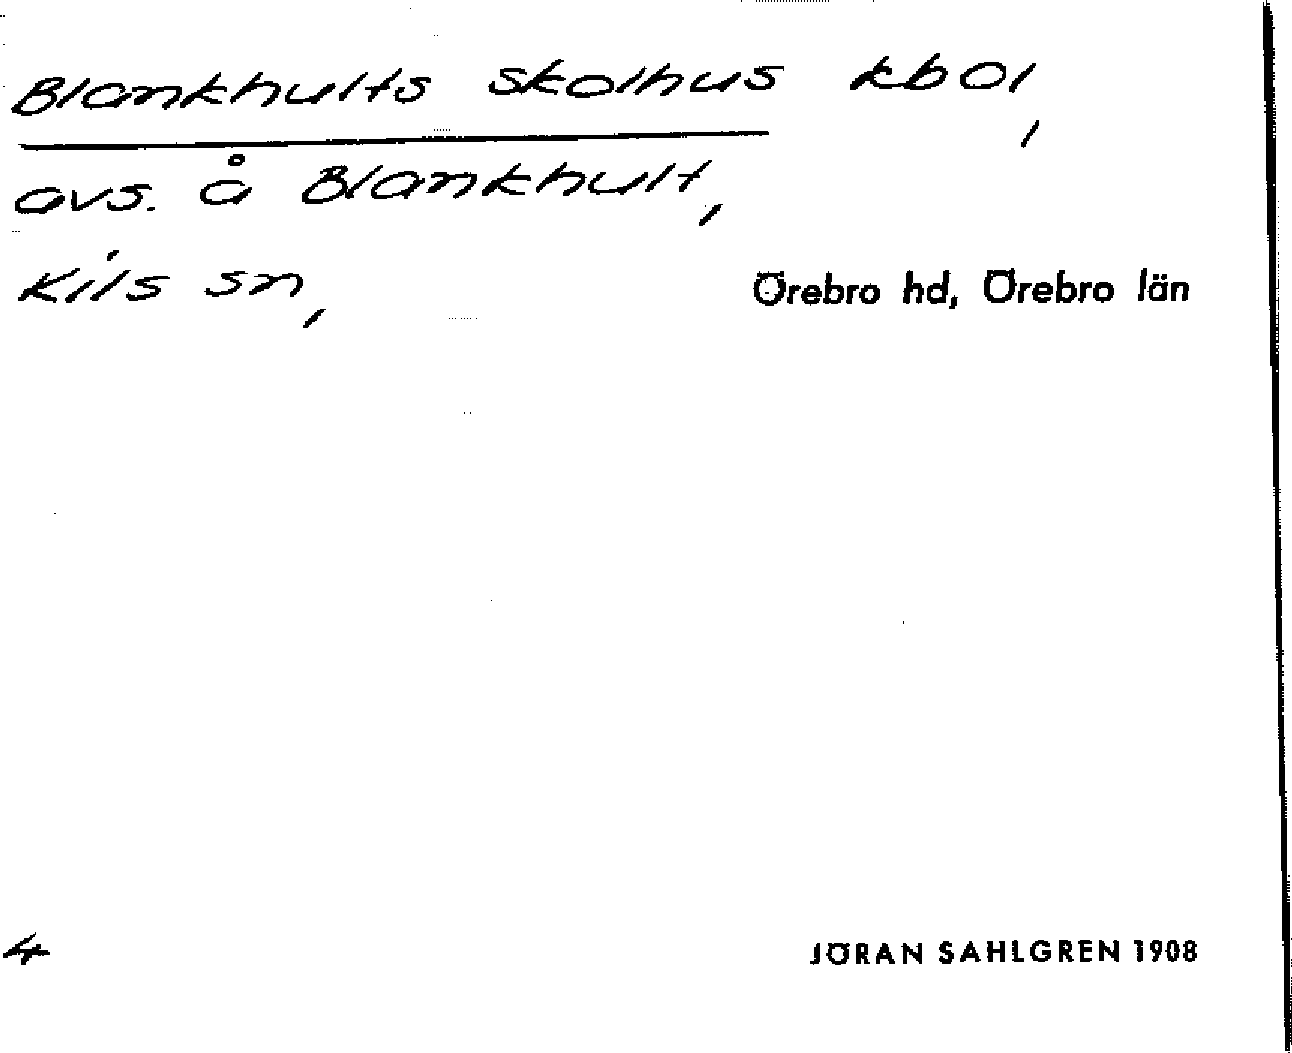 Blankhults skolhus kbol,
avs. å Blankhult,
Kils sn, Örebro hd, Örebro län
4 JÖRAN SAHLGREN 1908